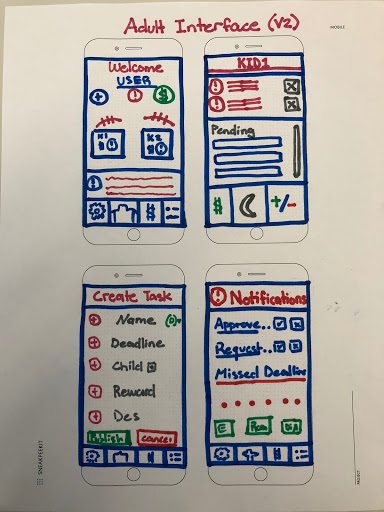 Adult Interface (V2)
MOBILE
Welcome
USER
$
K1
K2
$
KID1
Pending
$
+/-
Create Task
Name
Deadline
Child
Reward
Des
Publish
Cancel
! Notifications
Approve..
Request..
Missed Deadline
SNEAKPEEKIT
PROJECT